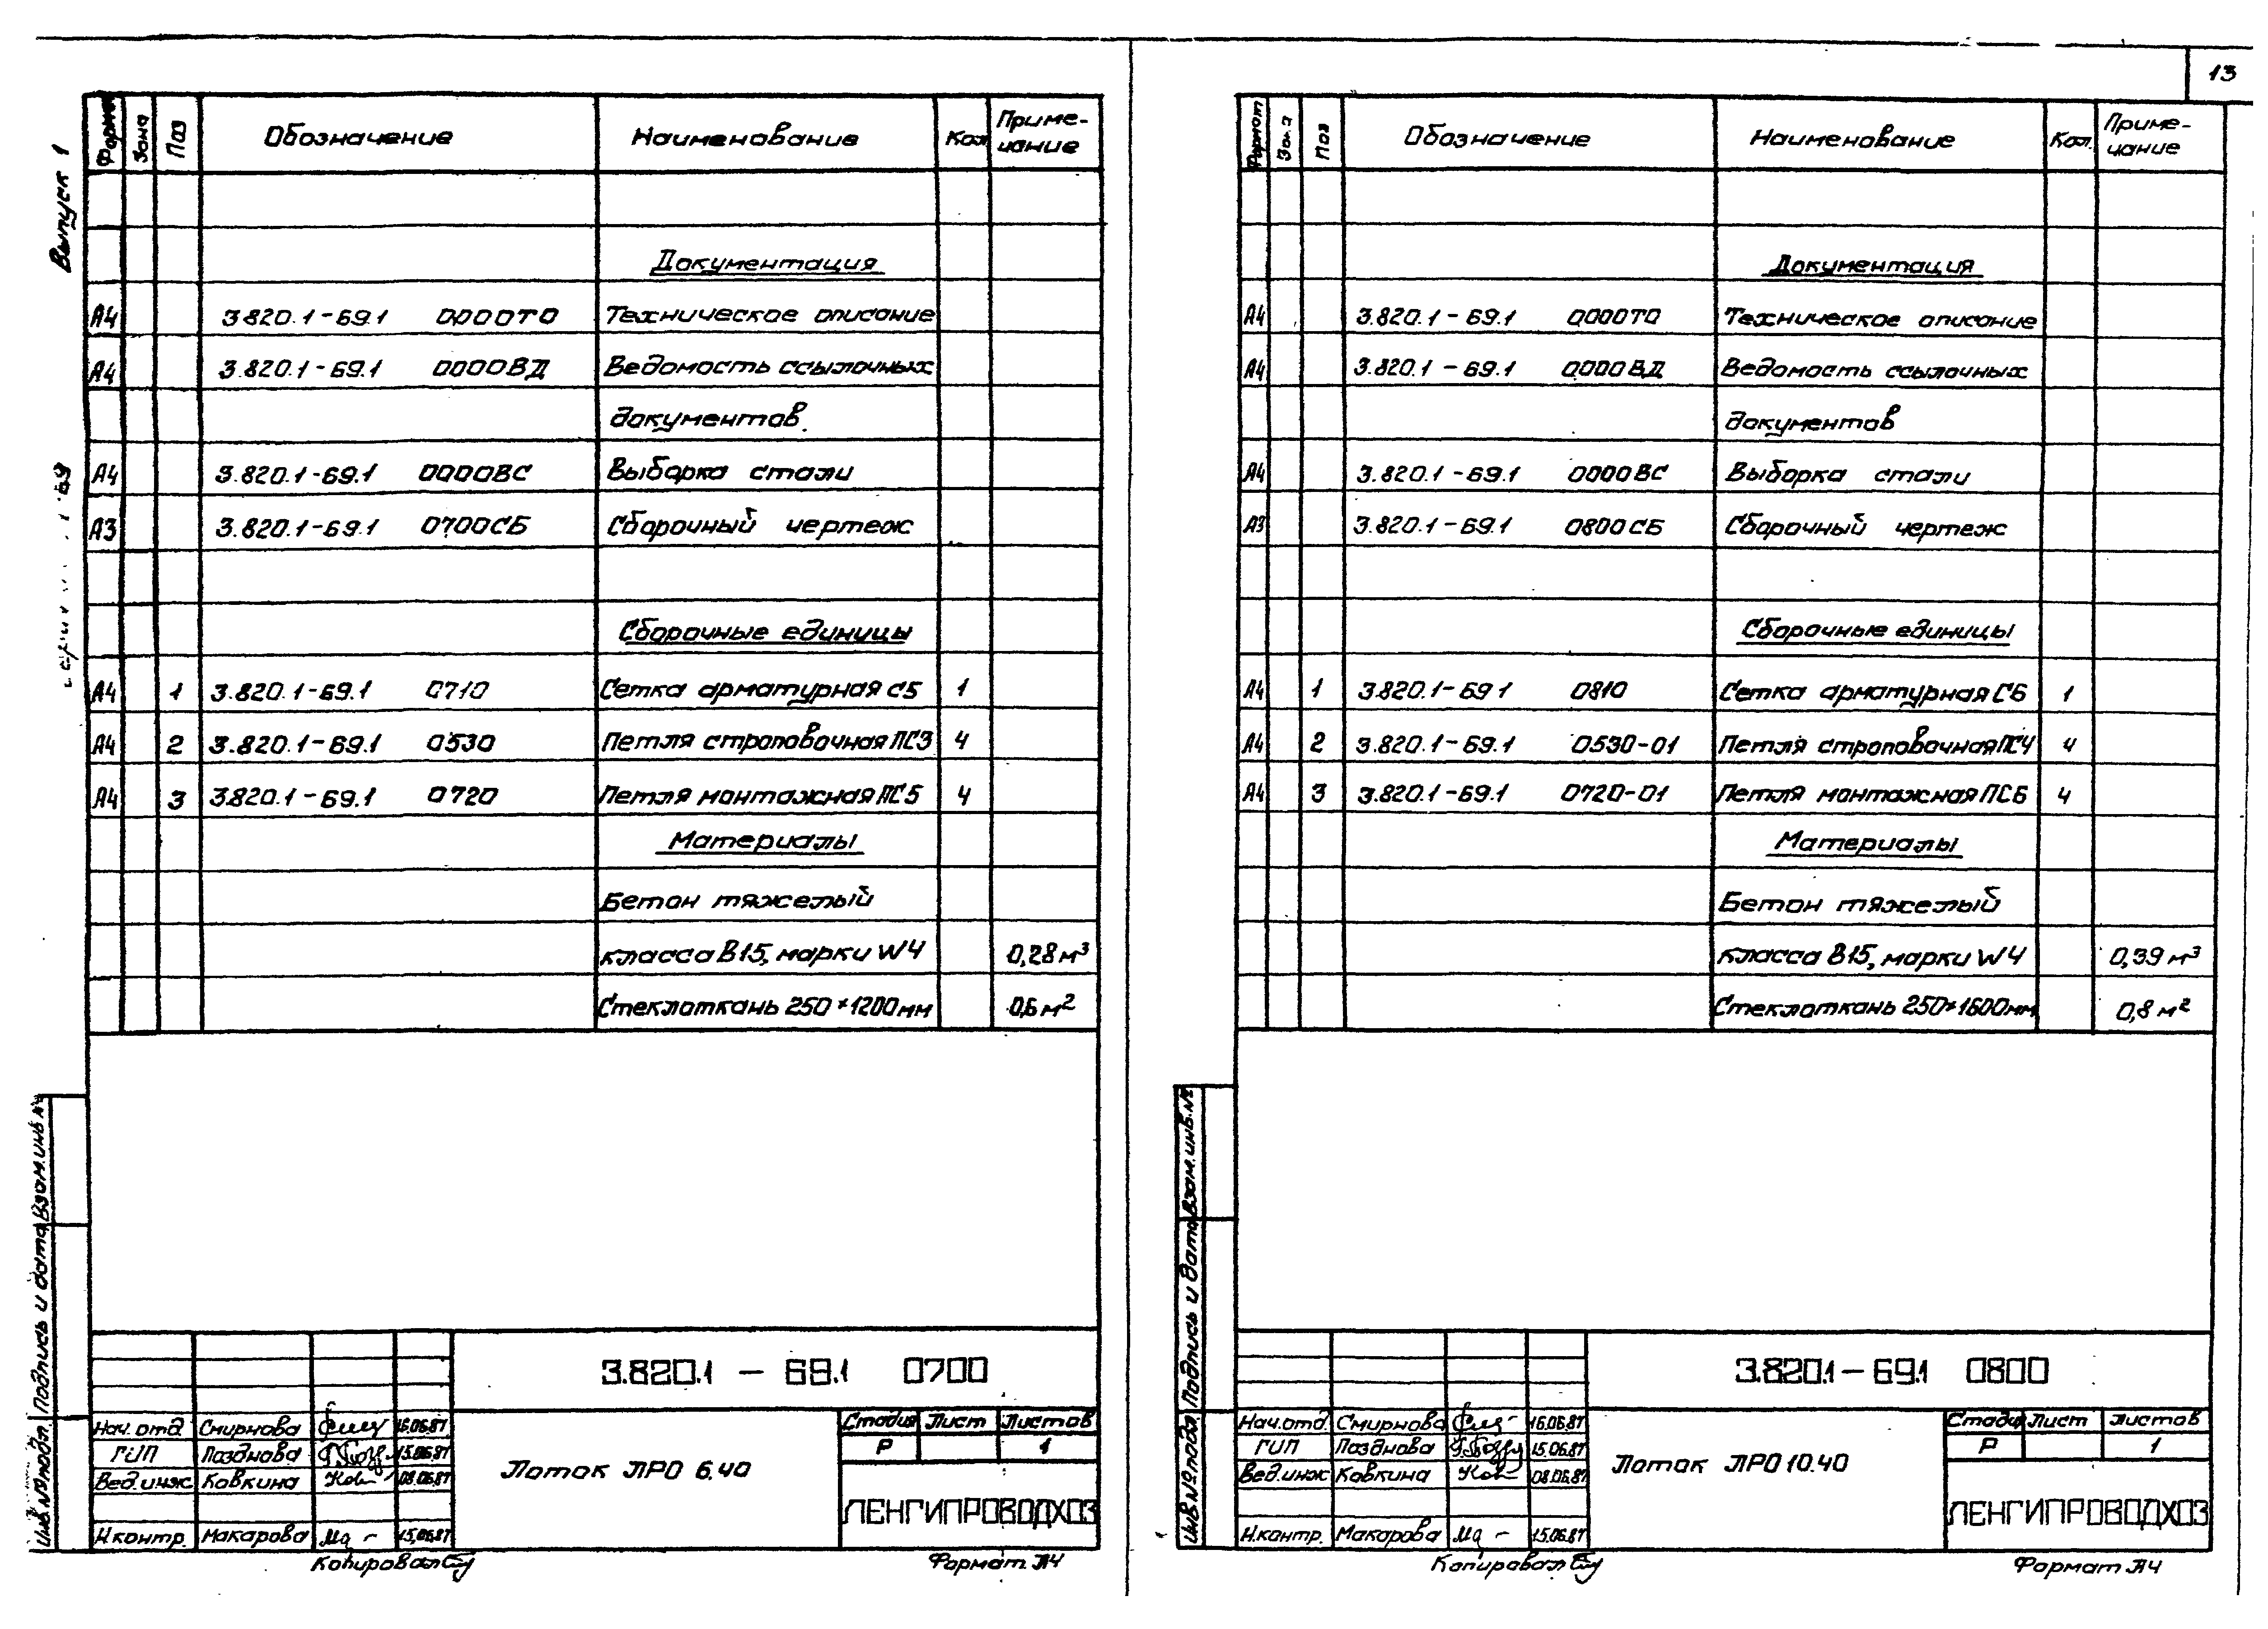 13
Выпуск 1
Формат Зона Поз Обозначение Наименование Кол Приме-
чание
Документация
А4 3.820.1-69.1 0000ТО Техническое описание
А4 3.820.1-69.1 0000ВД Ведомость ссылочных
документов
А4 3.820.1-69.1 0000ВС Выборка стали
А3 3.820.1-69.1 0700СБ Сборочный чертеж
Сборочные единицы
А4 1 3.820.1-69.1 0710 Сетка арматурная С5 1
А4 2 3.820.1-69.1 0530 Петля строповочная ПС3 4
А4 3 3.820.1-69.1 0720 Петля монтажная ПС5 4
Материалы
Бетон тяжелый
класса В15, марки W4 0,28 м³
Стеклоткань 250×1200мм 0,6 м²
Взам.инв.№
Подпись и дата
Инв.№ подл.
3.820.1 - 69.1 0700
Нач.отд. Смирнова 16.06.87
ГИП Позднова 15.06.87
Вед.инж Ковкина 08.06.87
Н.контр. Макарова 15.06.87
Лоток ЛРО 6.40
Стадия Лист Листов
Р 1
ЛЕНГИПРОВОДХОЗ
Копировал
Формат А4
Формат Зона Поз Обозначение Наименование Кол. Приме-
чание
Документация
А4 3.820.1-69.1 0000ТО Техническое описание
А4 3.820.1-69.1 0000ВД Ведомость ссылочных
документов
А4 3.820.1-69.1 0000ВС Выборка стали
А3 3.820.1-69.1 0800СБ Сборочный чертеж
Сборочные единицы
А4 1 3.820.1-69.1 0810 Сетка арматурная С6 1
А4 2 3.820.1-69.1 0530-01 Петля строповочная ПС4 4
А4 3 3.820.1-69.1 0720-01 Петля монтажная ПС6 4
Материалы
Бетон тяжелый
класса В15, марки W4 0,39 м³
Стеклоткань 250×1600мм 0,8 м²
Взам.инв.№
Подпись и дата
Инв.№ подл
3.820.1 - 69.1 0800
Нач.отд. Смирнова 16.06.87
ГИП Позднова 15.06.87
Вед.инж Ковкина 08.06.87
Н.контр. Макарова 15.06.87
Лоток ЛРО 10.40
Стадия Лист Листов
Р 1
ЛЕНГИПРОВОДХОЗ
Копировал
Формат А4